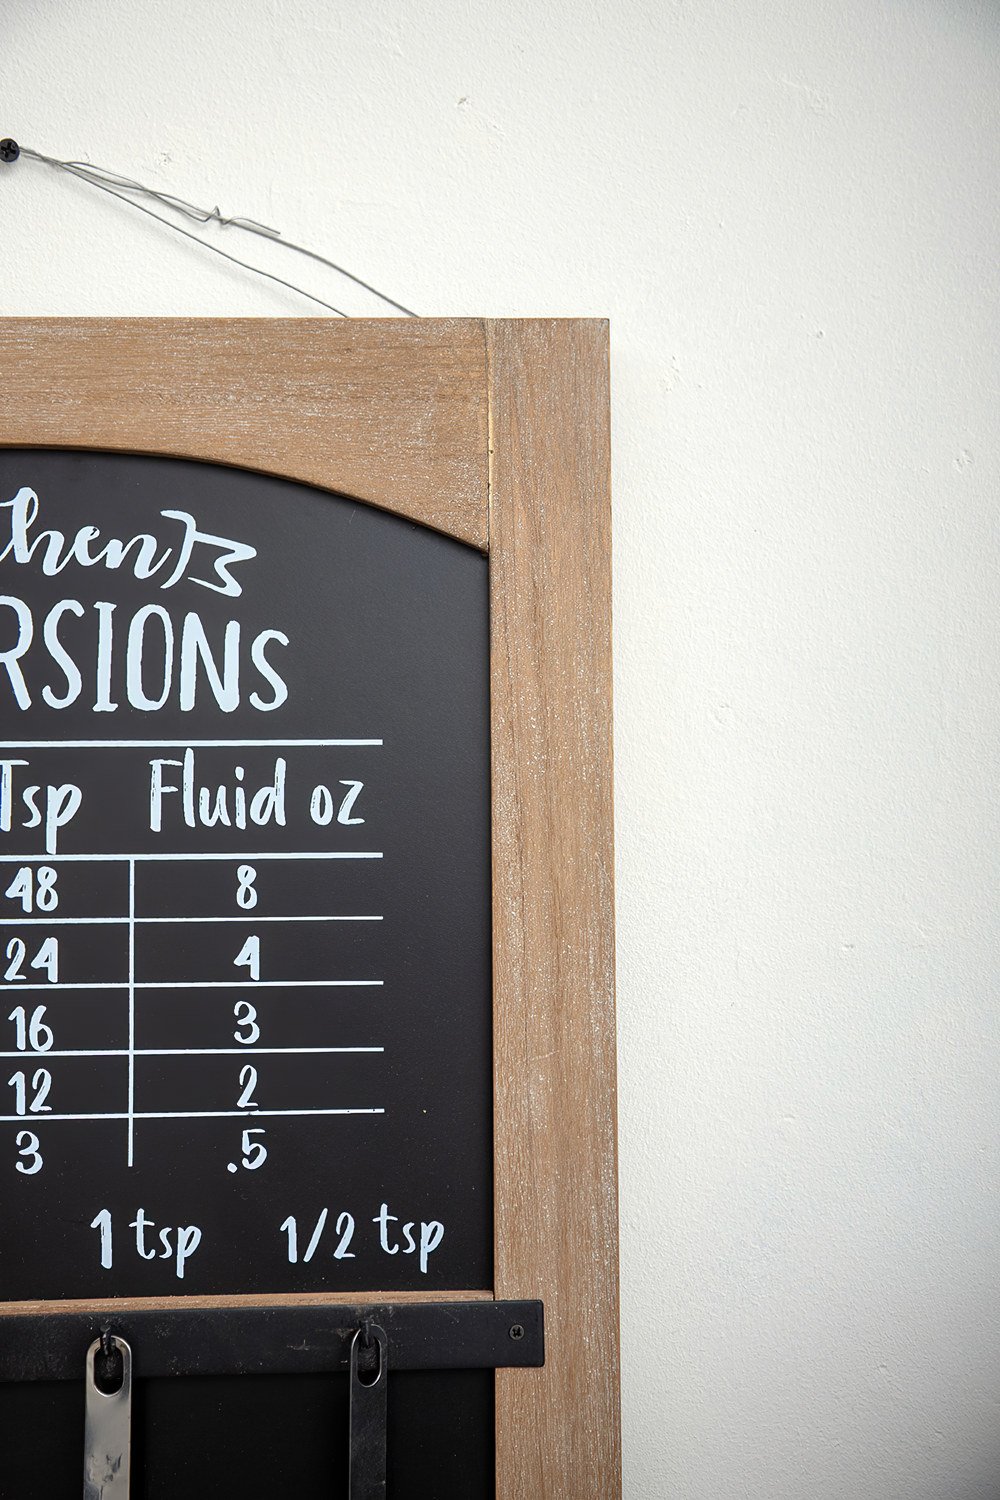 chen
RSIONS
Tsp Fluid oz
48 8
24 4
16 3
12 2
3 .5
1 tsp 1/2 tsp